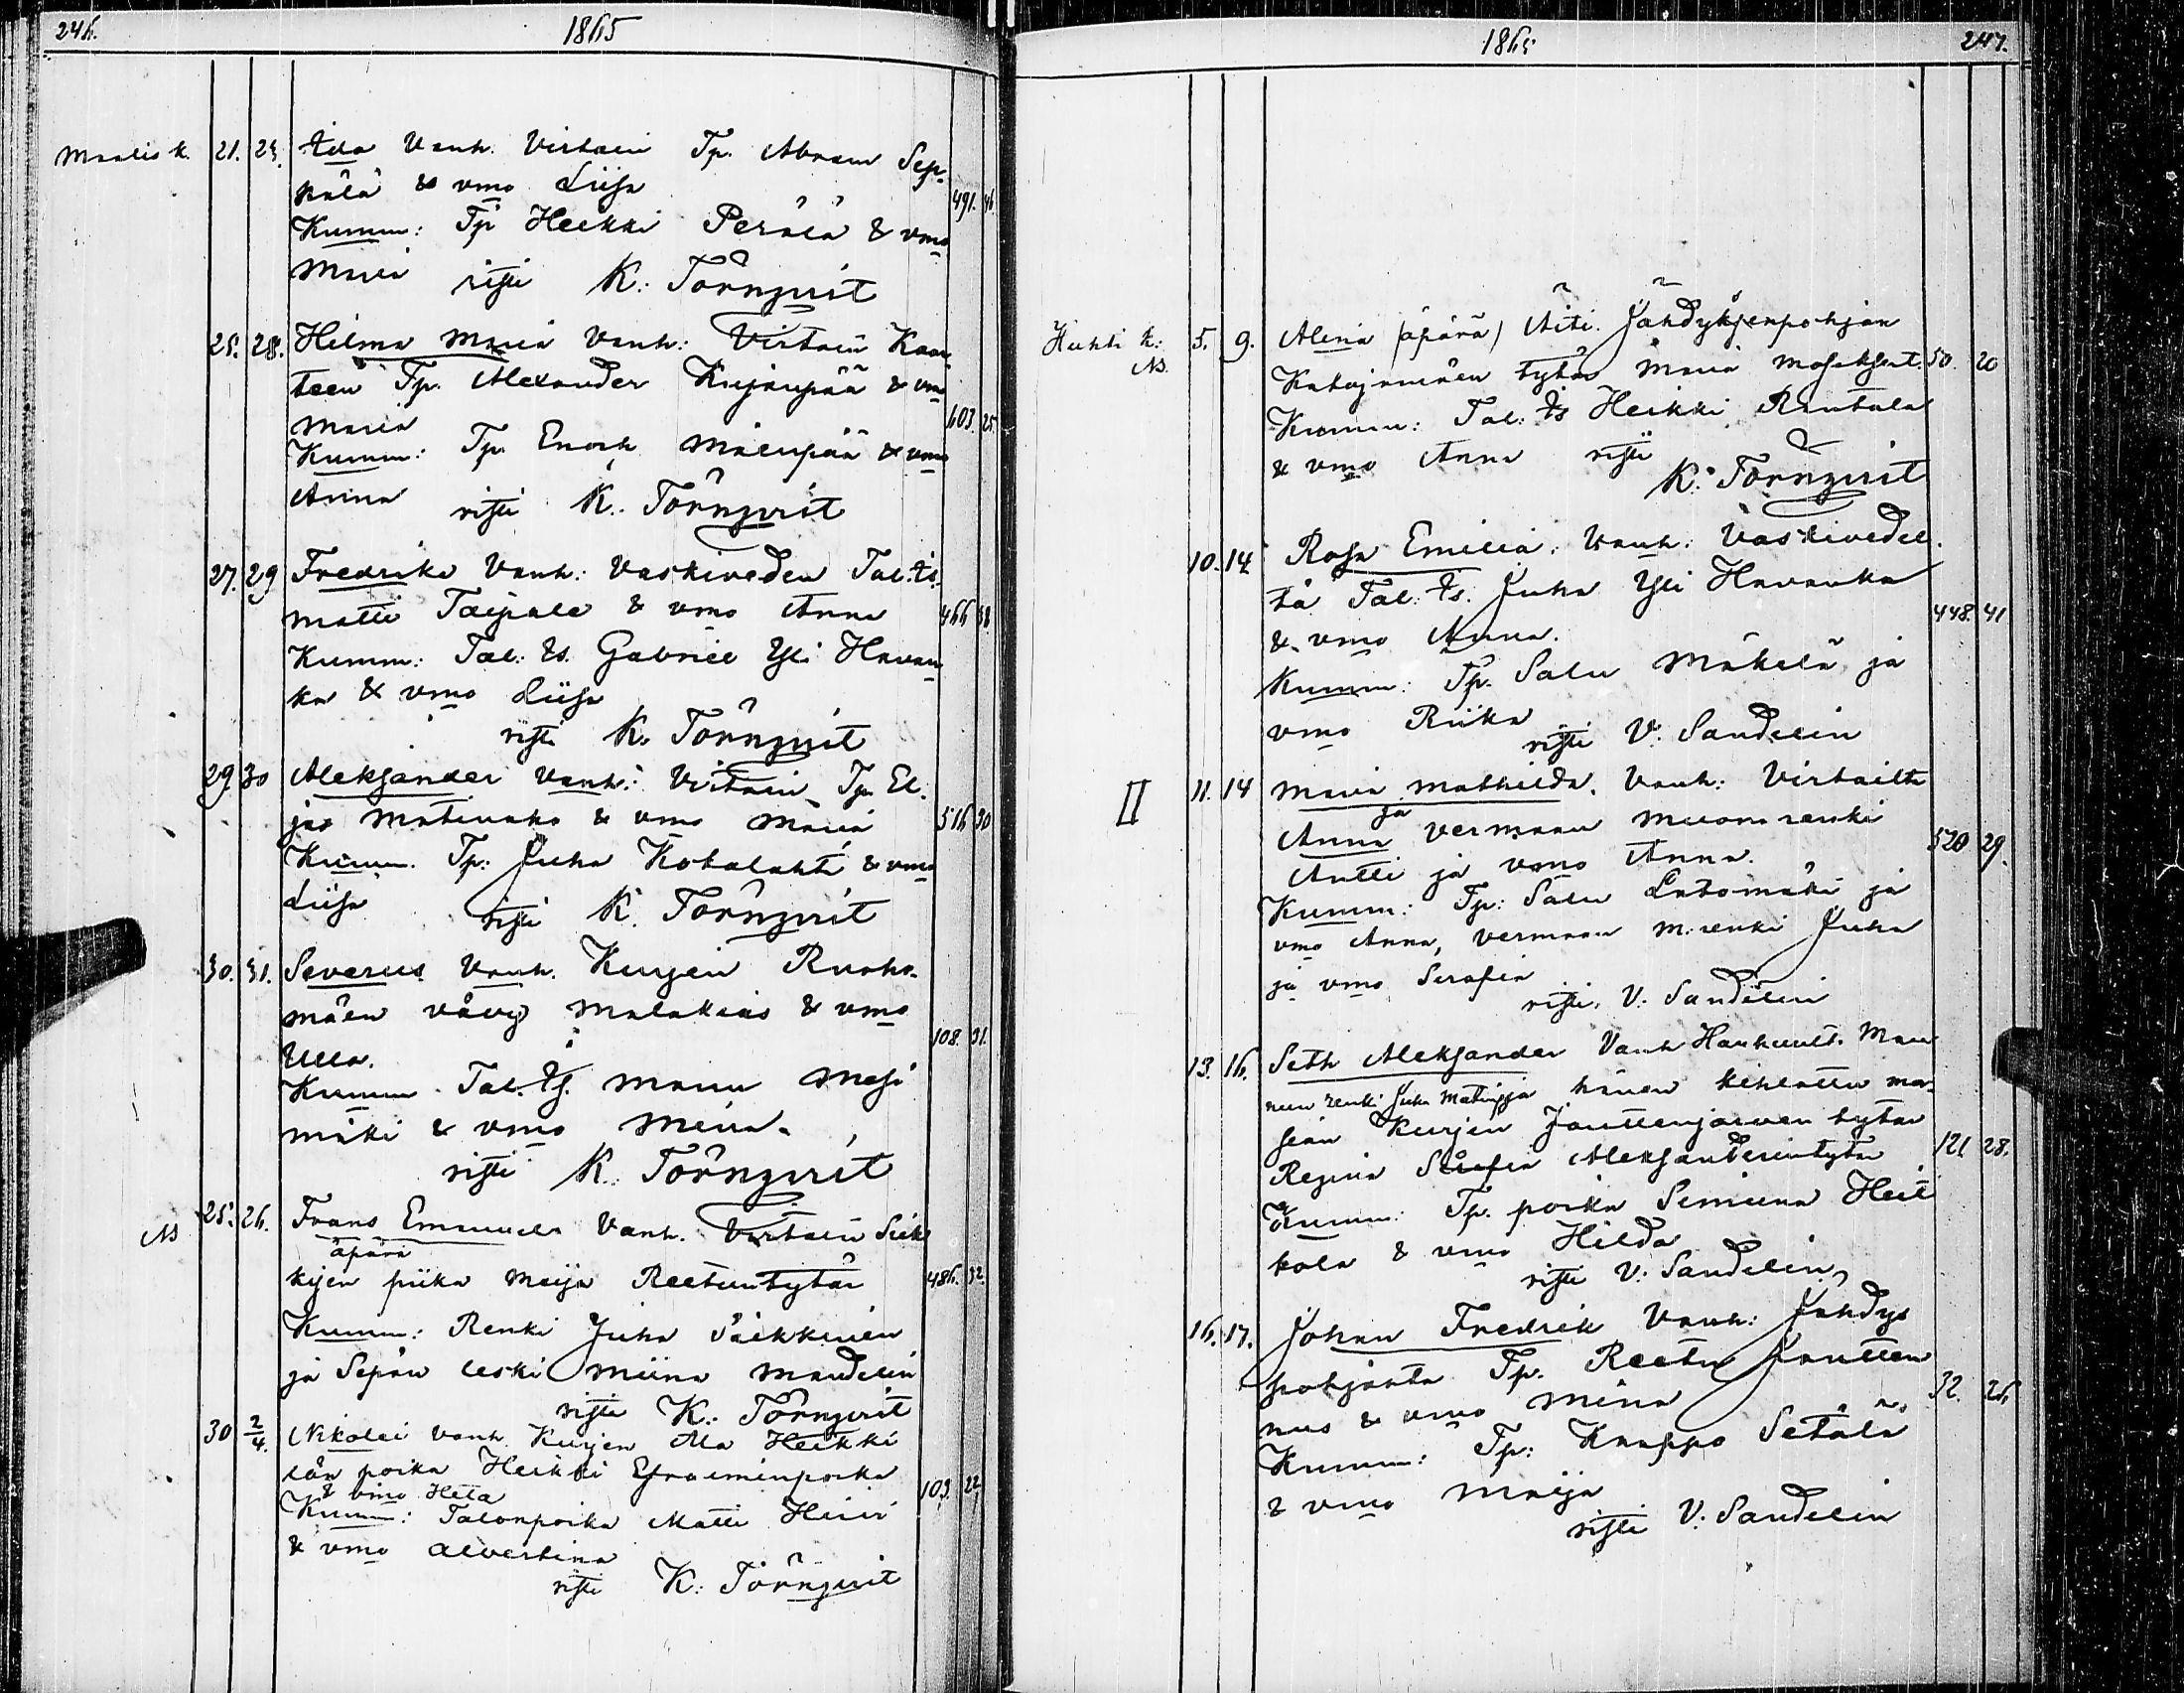 246.
1865
Maalis k. 21. 23. Ida Vanh. Virtain Tp. Abram Sep-
pälä & vmo Liisa 491. 46.
Kumm: Tp Heikki Perälä & vmo
Maria risti K. Törnqvist
25. 28. Hilma Maria Vanh: Virtain Kaar
teen Tp. Alexander Kujanpää & vmo
Maria 603. 25.
Kumm: Tp. Enoch Mäenpää & vmo
Anna risti K. Törnqvist
27. 29 Fredrika Vanh: Vaskiveden Tal. ts.
Matti Taipale & vmo Anna 466 38.
Kumm: Tal: ts. Gabriel Yli Havan
ka & vmo Liisa
risti K. Törnqvist
29 30 Aleksander Vanh: Virtain Tp. El.
jas & vmo Maria 516 30
Kumm. Tp: Juha Kotalahti & vmo
Liisa risti K. Törnqvist
30. 31. Severus Vanh. Kurjen Ruoho-
mäen vävy Malakias & vmo
Ulla. 108. 31.
Kumm Tal. ts. Manu Mesi
mäki & vmo Miina.
risti K. Törnqvist
Ns 25. 26. Frans Emanuel Vanh. Virtain
äpärä
piika Maija Reetuntytär 486. 32.
Kumm: Renki Juha Säikkinen
ja Sepän leski Miina Mandelin
risti K. Törnqvist
30 2/4. Nikolai Vanh. Kurjen Ala Heikki
län poika Heikki Efraiminpoika 103. 22.
& vmo Heta
Kumm: Talonpoika Matti
& vmo Albertina
risti K: Törnqvist
1865
247.
Huhti k: 5. 9. Alina (äpärä) Äiti. Jähdyksenpohjan
Ns. Katajamäen tytär Maria Moseksent. 50. 20
Kumm: Tal: ts Heikki Rantala
& vmo Anna risti
K. Törnqvist
10. 14 Rosa Emilia: Vanh: Vaskivedel.
tä Tal: ts. Juha Yli Havanka
& vmo Anna. 448. 41
Kumm: Tp. Salu Mäkelä ja
vmo Riika
risti V. Sandelin
II 11. 14 Maria Mathilda. Vanh: Virtailta
ja
Anna Vermaan muona renki
Antti ja vmo Anna. 520 29.
Kumm: Tp: Salu Latomäki ja
vmo Anna, Vermaan m. renki Juha
ja vmo Serafia
risti. V. Sandelin
13. 16. Seth Aleksander Vanh Mau
nun renki Juha ja hänen kihlattu mor-
sian Kurjen Jauttenjärven tytär
Regina Serafia Aleksanderintytär 121 28.
Kumm: Tp. poika Simiuna Heik
kola & vmo Hilda
risti V. Sandelin
16. 17. Johan Fredrik Vanh: Jähdys
pohjasta Tp. Reetu Jautten
nus & vmo Miina 32. 26.
Kumm: Tp: Kaappo Setälä
& vmo Maija
risti V. Sandelin